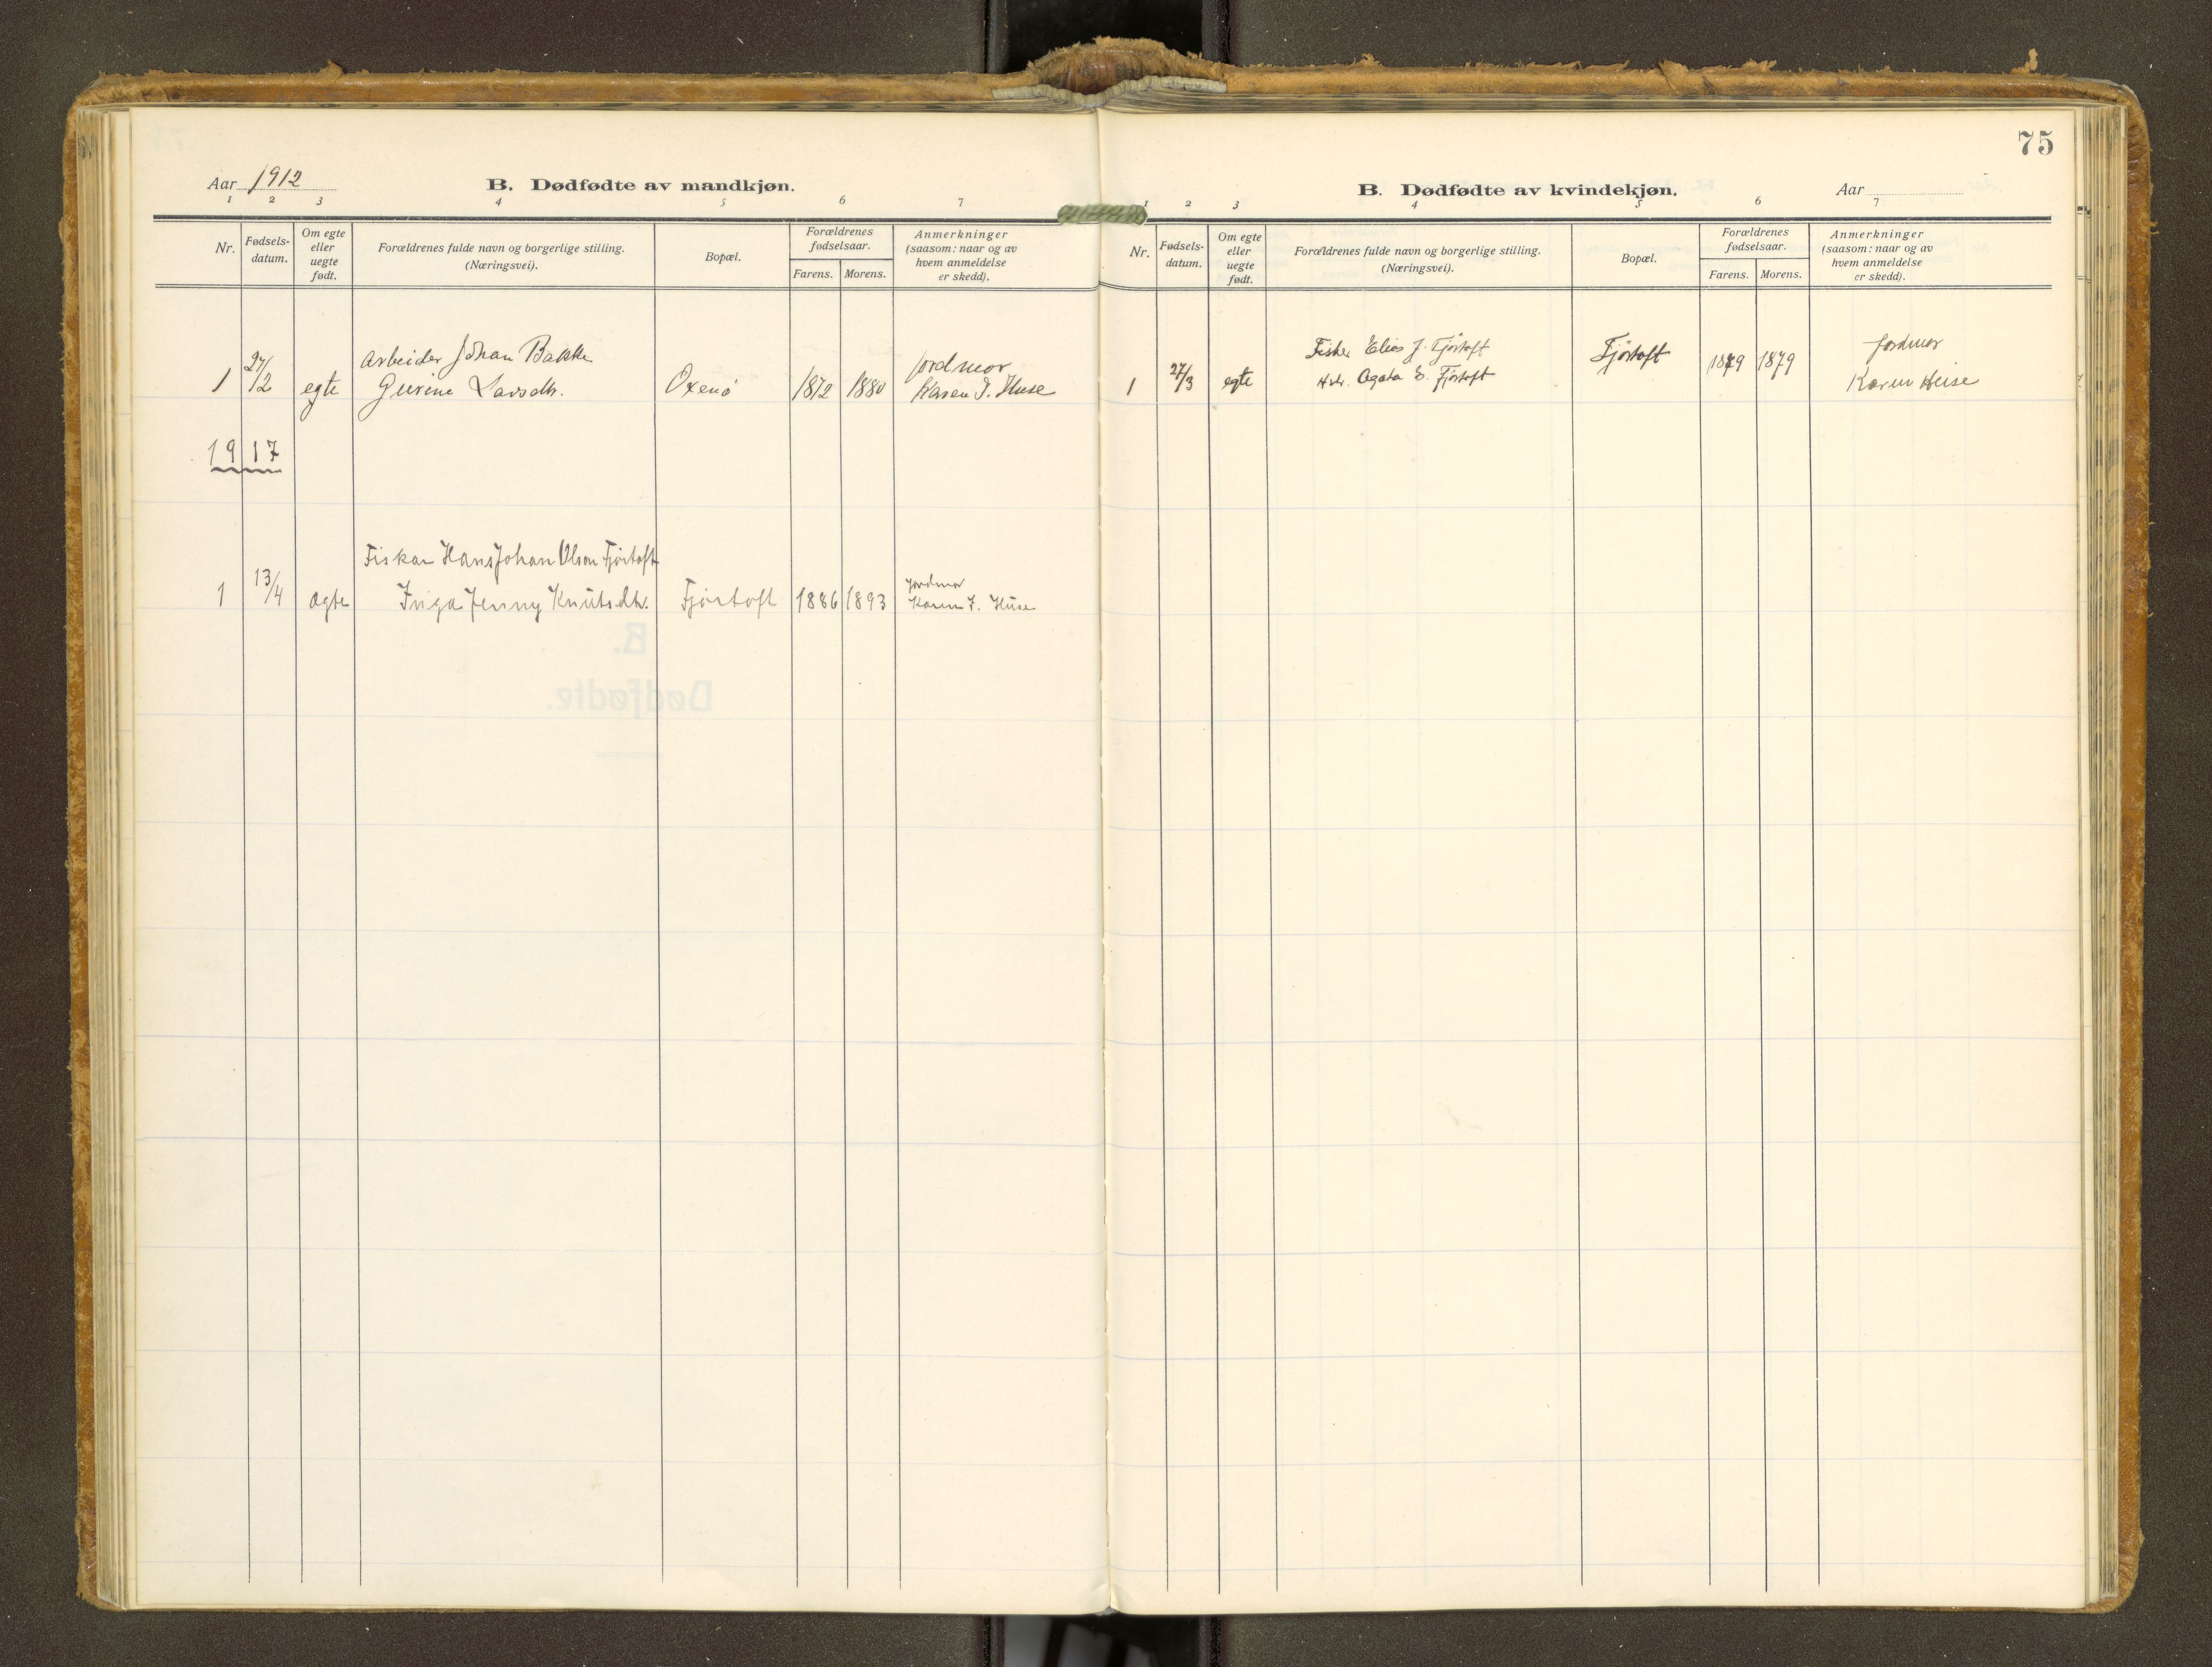 Aar 1912
B. Dødfødte av mandkjøn.
1 2 3 4 5 6 7
Nr.
Fødsels-
datum.
Om egte
eller
uegte
født.
Forældrenes fulde navn og borgerlige stilling.
(Næringsvei).
Bopæl.
Forældrenes
fødselsaar.
Farens. Morens.
Anmerkninger
(saasom: naar og av
hvem anmeldelse
er skedd).
arbeider Johan Bakke
1 27/12 egte Gurine Larsdtr. Oxenö 1872 1880
Jordmor
Karen J. Huse
1917
Fiskar Hans Johan Olson Fjørtoft
1 13/4 ægte Inga Jenny Knutsdtr. Fjørtoft 1886 1893
Jordmor
Karen J. Huse
B.
Dødfødte.
75
B. Dødfødte av kvindekjøn.
Aar
1 2 3 4 5 6 7
Nr.
Fødsels-
datum.
Om egte
eller
uegte
født.
Forældrenes fulde navn og borgerlige stilling.
(Næringsvei).
Bopæl.
Forældrenes
fødselsaar.
Farens. Morens.
Anmerkninger
(saasom: naar og av
hvem anmeldelse
er skedd).
Fisker Elias J. Fjörtoft
1 27/3 egte Agata E. Fjörtoft Fjörtoft 1879 1879
Jordmor
Karen Huse